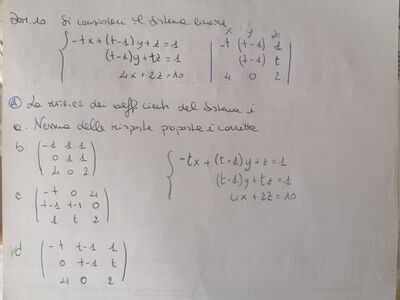 Si consideri il sistema lineare
-tx+(t-1)y+z=1
(t-1)y+tz=1
4x+2z=10
x y z
-t (t-1) 1
(t-1) t
4 0 2
① La matrice dei coefficienti del sistema è
a. Nessuna delle risposte proposte è corretta
b. -1 1 1
0 1 1
4 0 2
c. -t 0 4
t-1 t-1 0
1 t 2
d. -t t-1 1
0 t-1 t
4 0 2
-tx+(t-1)y+z=1
(t-1)y+tz=1
4x+2z=10